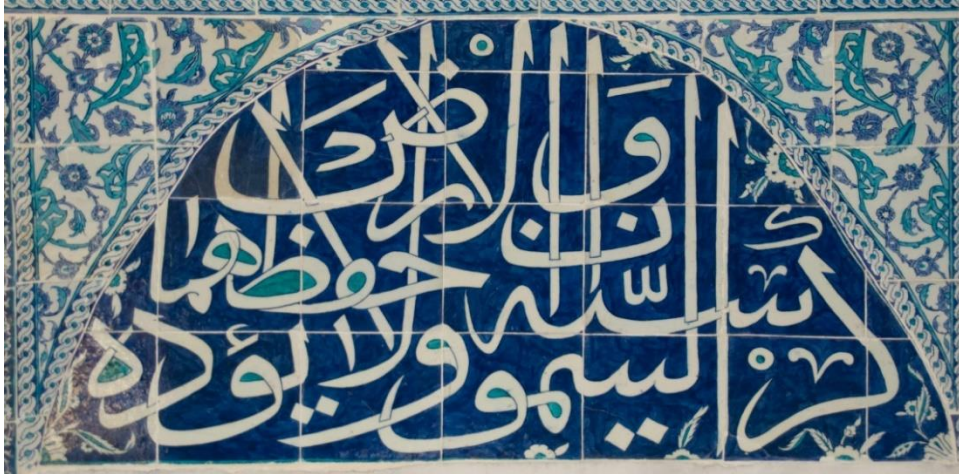 كرسيه السموات والارض ولا يؤده حفظهما